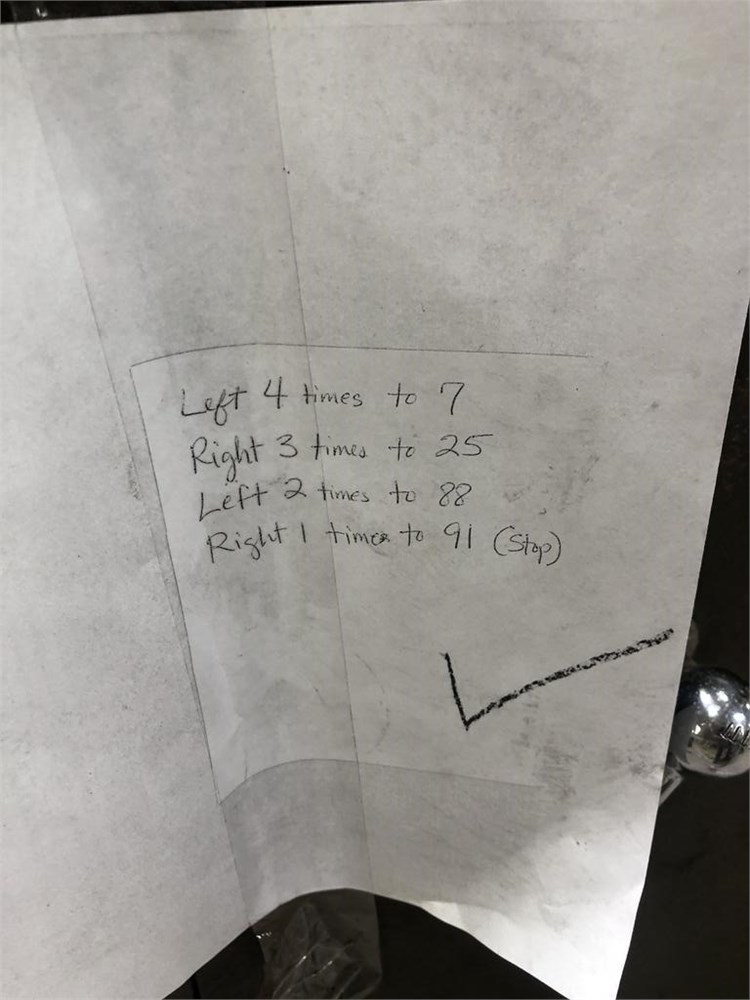 Left 4 times to 7
Right 3 times to 25
Left 2 times to 88
Right 1 times to 91 (Stop)